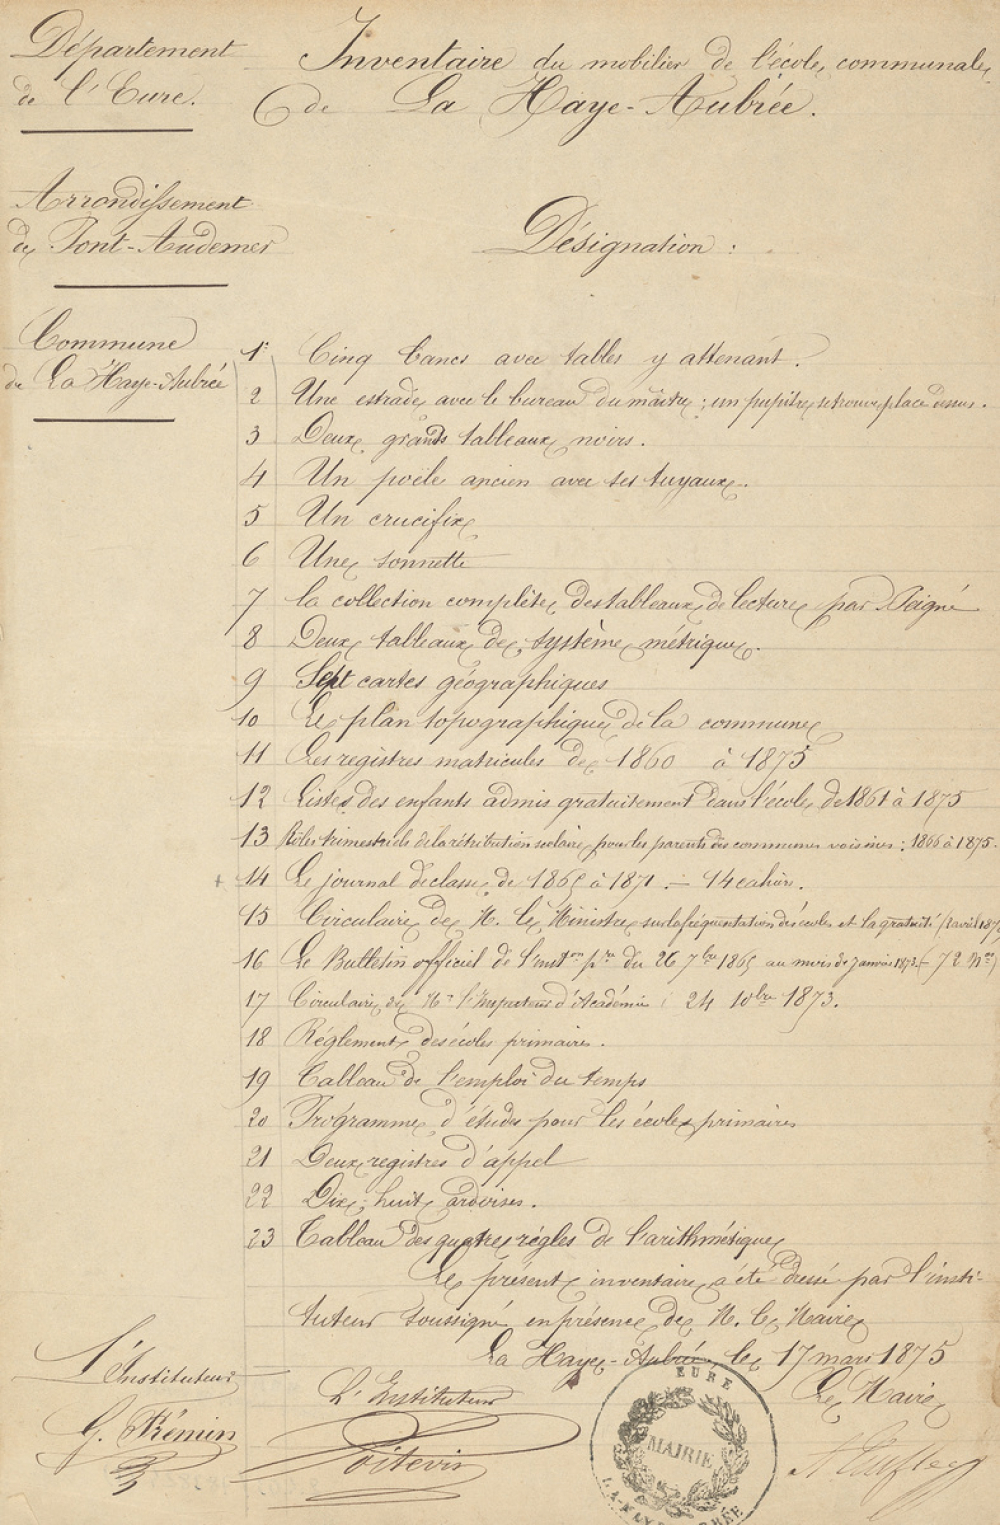 Département
de l'Eure.
Inventaire du mobilier de l'école communale
de La Haye-Aubrée.
Arrondissement
de Pont-Audemer
Désignation :
Commune
de La Haye-Aubrée
1° Cinq bancs avec tables y attenant.
2 Une estrade avec le bureau du maître ; un pupitre se trouve placé dessus.
3 Deux grands tableaux noirs.
4 Un poële ancien avec ses tuyaux.
5 Un crucifix
6 Une sonnette
7 La collection complète des tableaux de lecture par Peigné
8 Deux tableaux de système métrique.
9 Sept cartes géographiques
10 Le plan topographique de la commune
11 Les registres matricules de 1860 à 1875
12 Listes des enfants admis gratuitement dans l'école de 1861 à 1875
13 Rôles trimestriels de la rétribution scolaire pour les parents des communes voisines : 1866 à 1875.
+ 14 Le journal de classe de 1865 à 1871 .- 14 cahiers.
15 Circulaire de M. le Ministre sur la fréquentation des écoles et la gratuité
16 Le Bulletin officiel de l'inston pre du 26 7bre 1865 au mois de Janvier 1873 (- 72 Nos)
17 Circulaire de Mr l'Inspecteur d'Académie : 24 10bre 1873.
18 Réglement des écoles primaires.
19 Tableau de l'emploi du temps
20 Programme d'études pour les écoles primaires
21 Deux registres d'appel
22 Dix-huit ardoises.
23 Tableau des quatre régles de l'arithmétique
Le présent inventaire a été dressé par l'insti-
tuteur soussigné en présence de M. le Maire
La Haye-Aubrée, le 17 mars 1875
L'Instituteur
L'Instituteur
Le Maire
G. Rémin
Poitevin
EURE
MAIRIE